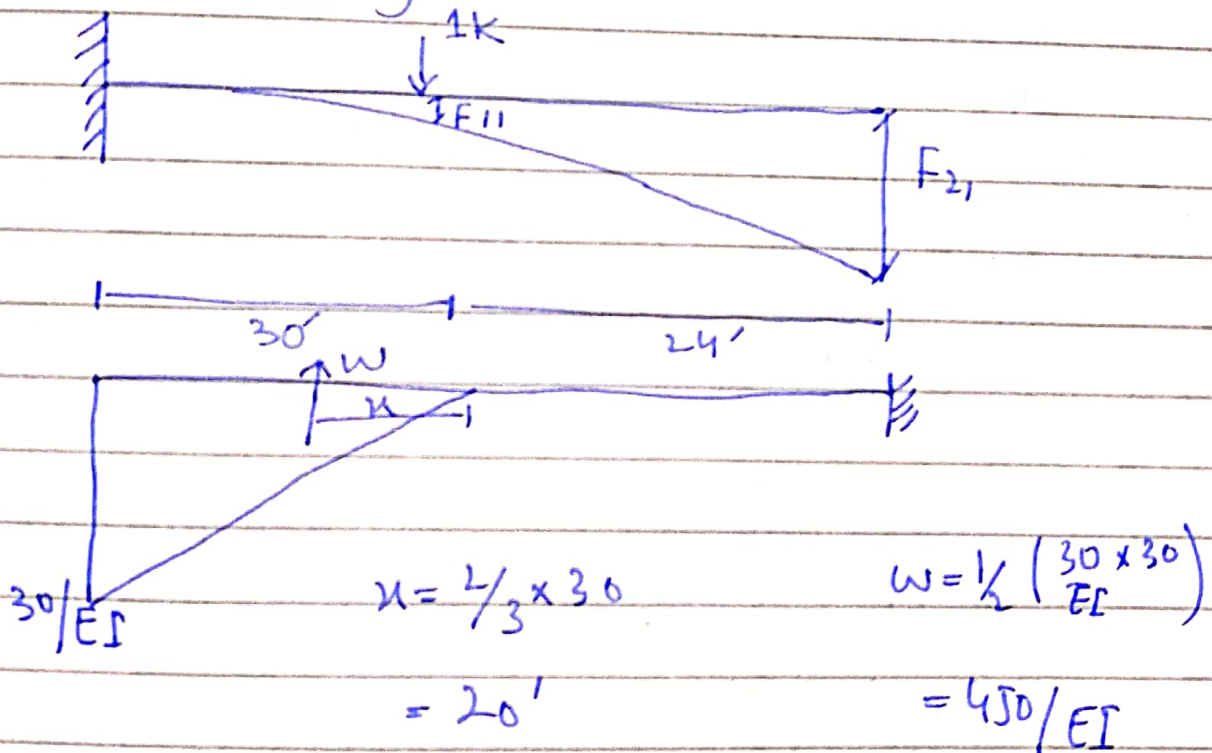 1K
F11
F21
30'
24'
W
x
30/EI
x = 2/3 × 30
W = 1/2 (30 × 30 / EI)
= 20'
= 450/EI